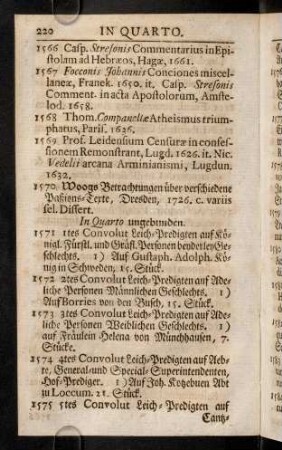 220 IN QUARTO.
1566 Casp. Stresonis Commentarius in Epi-
stolam ad Hebræos, Hagæ, 1661.
1567 Focconis Johannis Conciones miscel-
laneæ, Franek. 1650. it. Casp. Stresonis
Comment. in acta Apostolorum, Amste-
lod. 1658.
1568 Thom. Companellæ Atheismus trium-
phatus, Paris. 1636.
1569 Prof. Leidensium Censuræ in confes-
sionem Remonstrant, Lugd. 1626. it. Nic.
Vedelii arcana Arminianismi, Lugdun.
1632.
1570 Woogs Betrachtungen über verschiedene
Paßions-Texte, Dresden, 1726. c. variis
sel. Dissert.
In Quarto ungebunden.
1571 1tes Convolut Leich-Predigten auf Kö-
nigl. Fürstl. und Gräfl. Personen beyderley Ge-
schlechts. 1) Auf Gustaph. Adolph. Kö-
nig in Schweden, 15. Stück.
1572 2tes Convolut Leich-Predigten auf Ade-
liche Personen Männlichen Geschlechts. 1)
Auf Borries von den Busch, 15. Stück.
1573 3tes Convolut Leich-Predigten auf Ade-
liche Personen Weiblichen Geschlechts. 1)
auf Fräulein Helena von Münchhausen, 7.
Stücke.
1574 4tes Convolut Leich-Predigten auf Aeb-
te, General- und Special-Superintendenten,
Hof-Prediger. 1) Auf Joh. Kotzebuen Abt
zu Loccum. 21. Stück.
1575 5tes Convolut Leich-Predigten auf
Cantz-